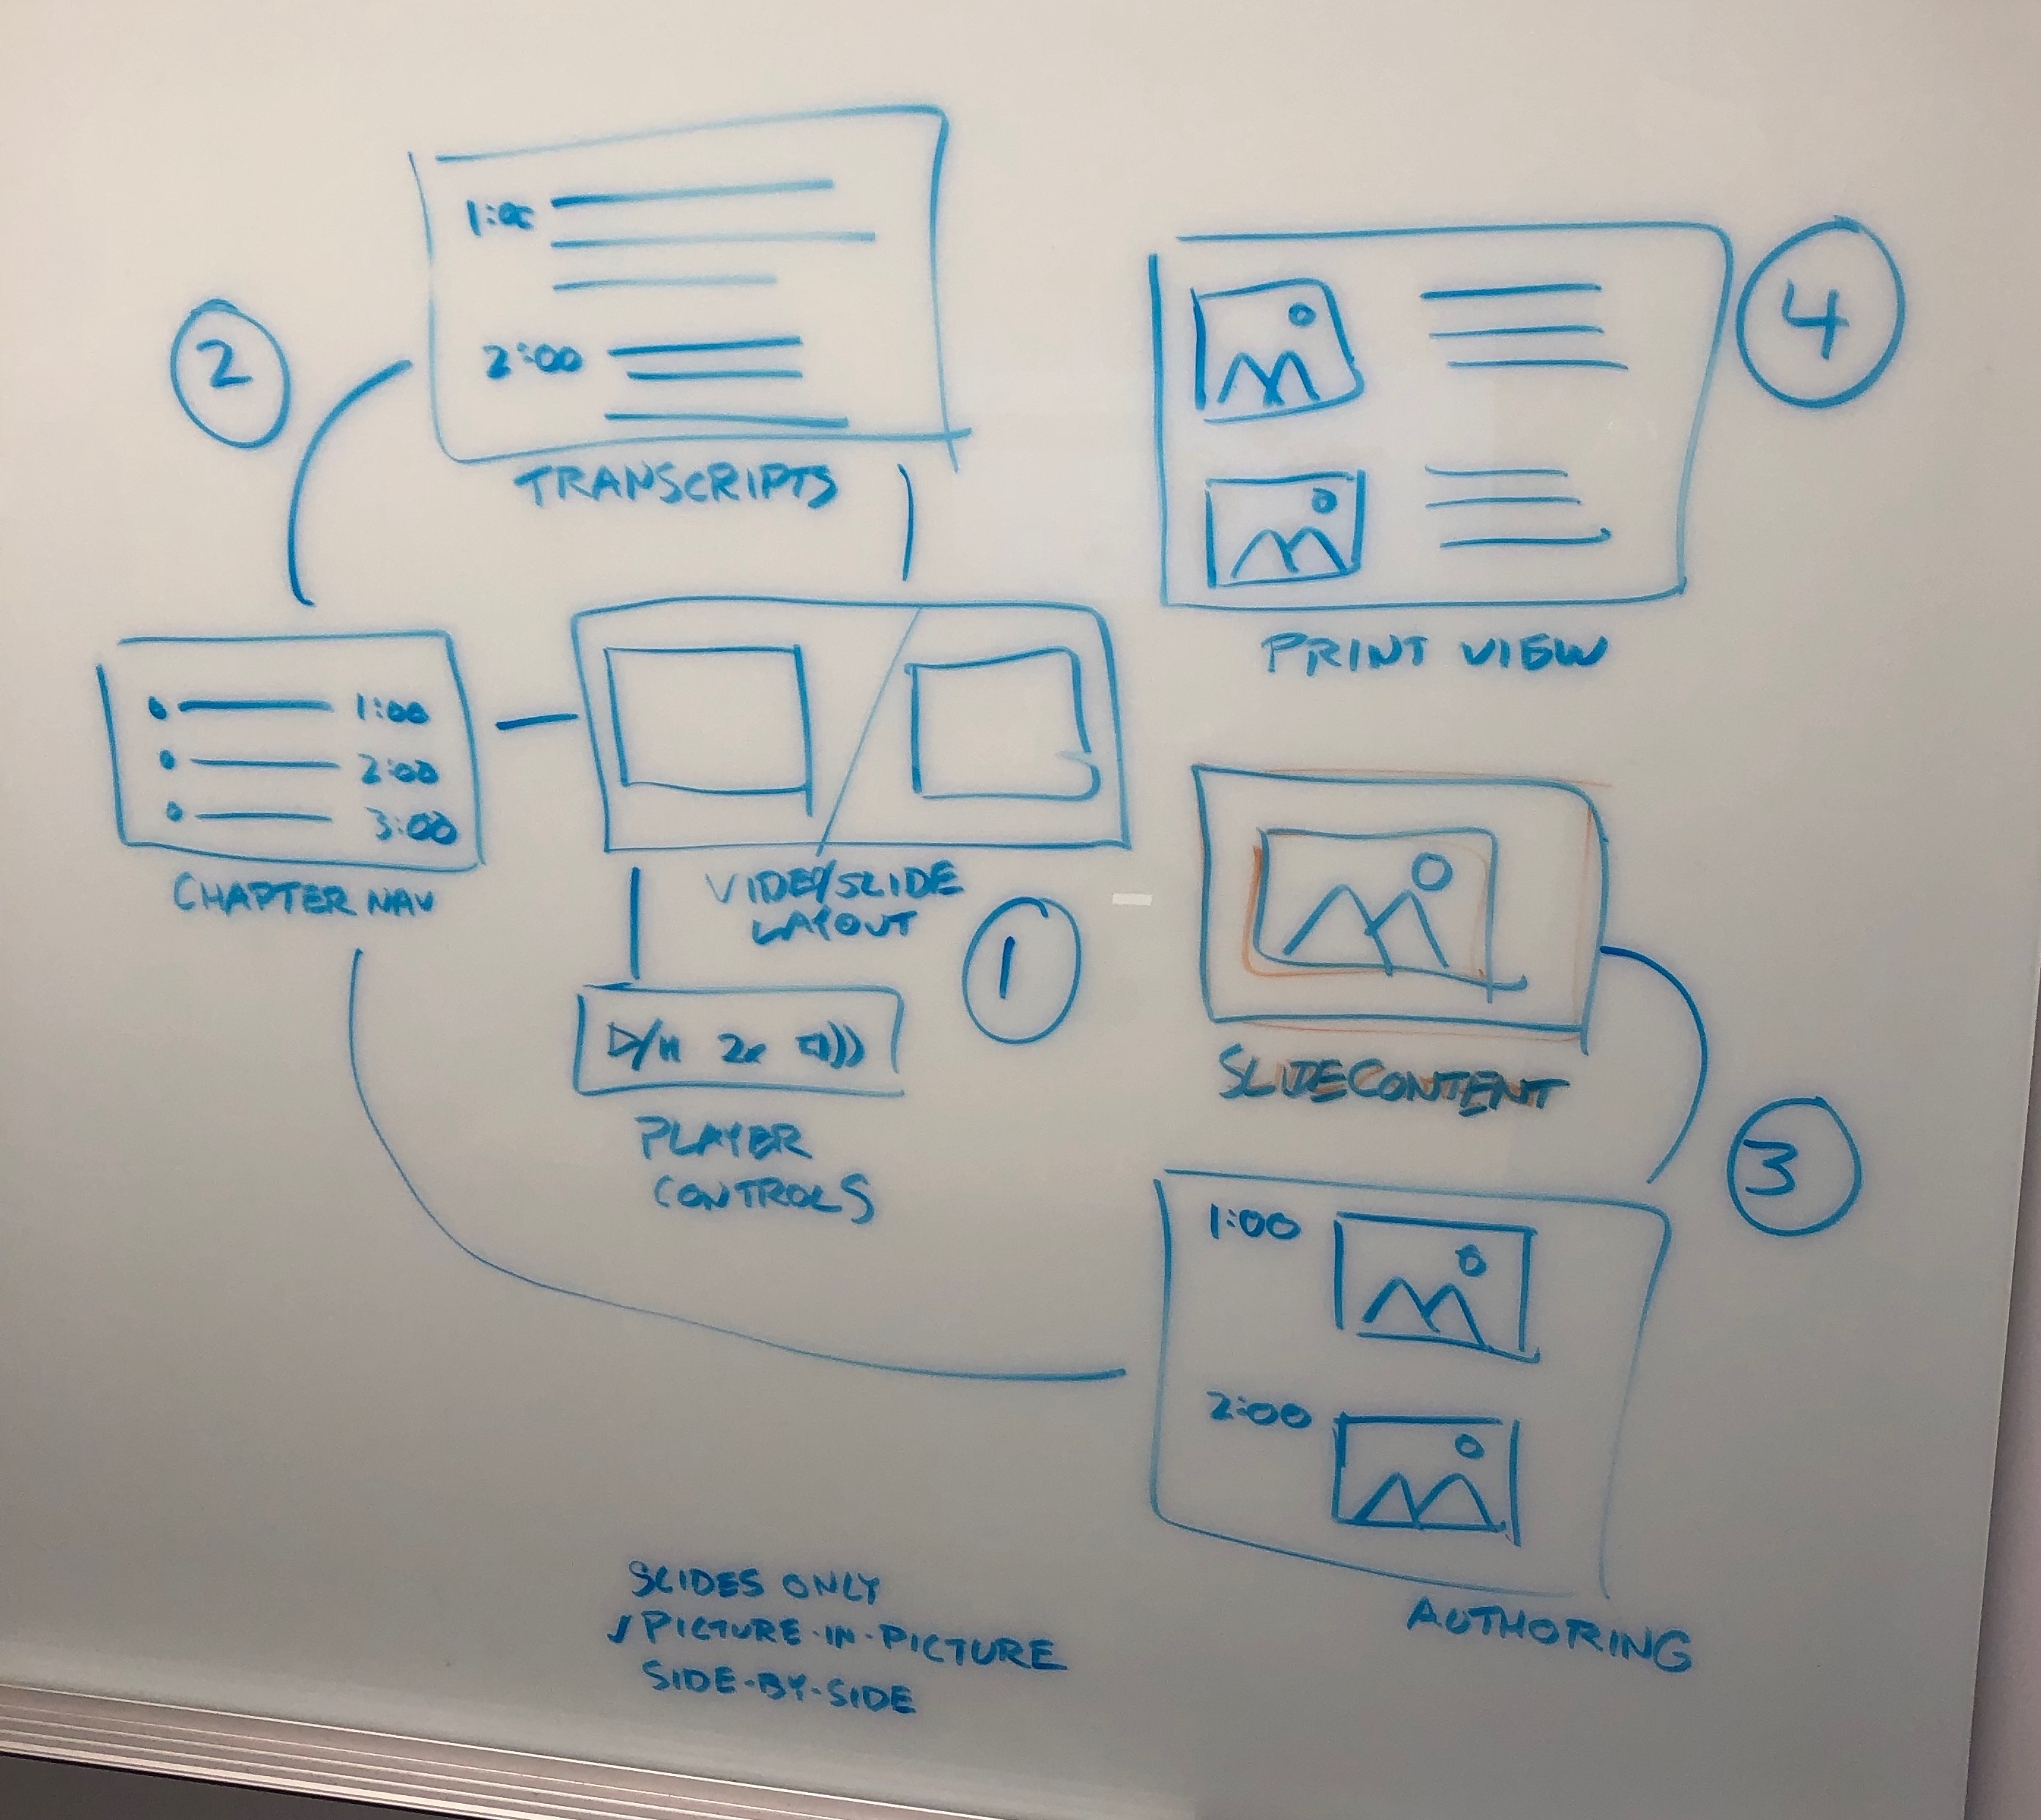 1:00
2:00
TRANSCRIPTS
2
4
PRINT VIEW
1:00
2:00
3:00
CHAPTER NAV
VIDEO/SLIDE
LAYOUT
1
2x
PLAYER
CONTROLS
SLIDE CONTENT
3
1:00
2:00
AUTHORING
SLIDES ONLY
✓PICTURE-IN-PICTURE
SIDE-BY-SIDE